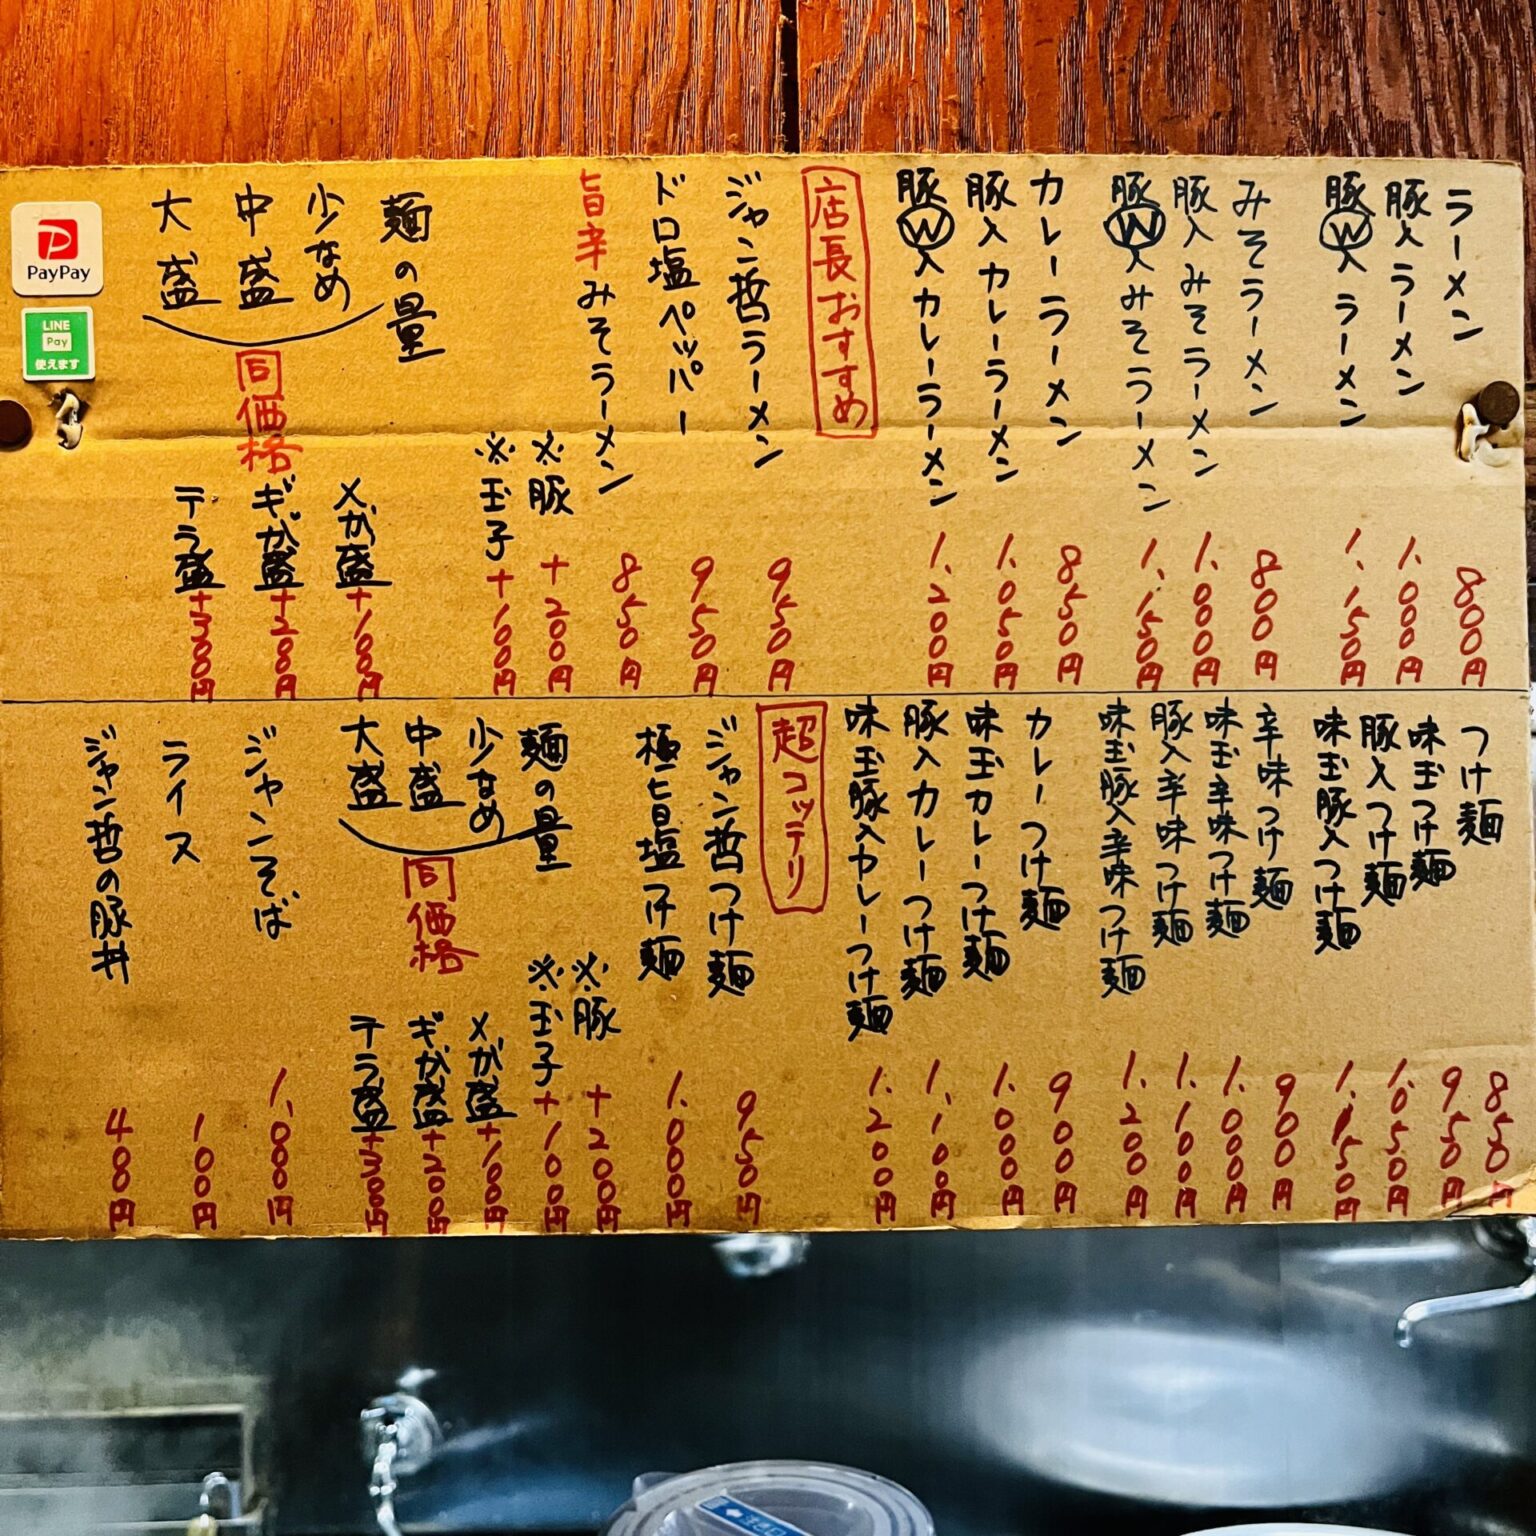 ラーメン 800円
豚入ラーメン 1,000円
豚Ⓦ入ラーメン 1,150円
みそラーメン 800円
豚入みそラーメン 1,000円
豚Ⓦ入みそラーメン 1,150円
カレーラーメン 850円
豚入カレーラーメン 1,050円
豚Ⓦ入カレーラーメン 1,200円
店長おすすめ
ジャン哲ラーメン 950円
ドロ塩ペッパー 950円
旨辛みそラーメン 850円
※豚 +200円
※玉子 +100円
麺の量
少なめ
中盛
大盛
同価格
メガ盛+100円
ギガ盛+200円
テラ盛+300円
PayPay
LINE
Pay
使えます
つけ麺 850円
味玉つけ麺 950円
豚入つけ麺 1,050円
味玉豚入つけ麺 1,150円
辛味つけ麺 900円
味玉辛味つけ麺 1,000円
豚入辛味つけ麺 1,100円
味玉豚入辛味つけ麺 1,200円
カレーつけ麺 900円
味玉カレーつけ麺 1,000円
豚入カレーつけ麺 1,100円
味玉豚入カレーつけ麺 1,200円
超コッテリ
ジャン哲つけ麺 950円
極旨塩つけ麺 1,000円
※豚 +200円
※玉子 +100円
麺の量
少なめ
中盛
大盛
同価格
メガ盛+100円
ギガ盛+200円
テラ盛+300円
ジャンそば 1,000円
ライス 100円
ジャン哲の豚丼 400円